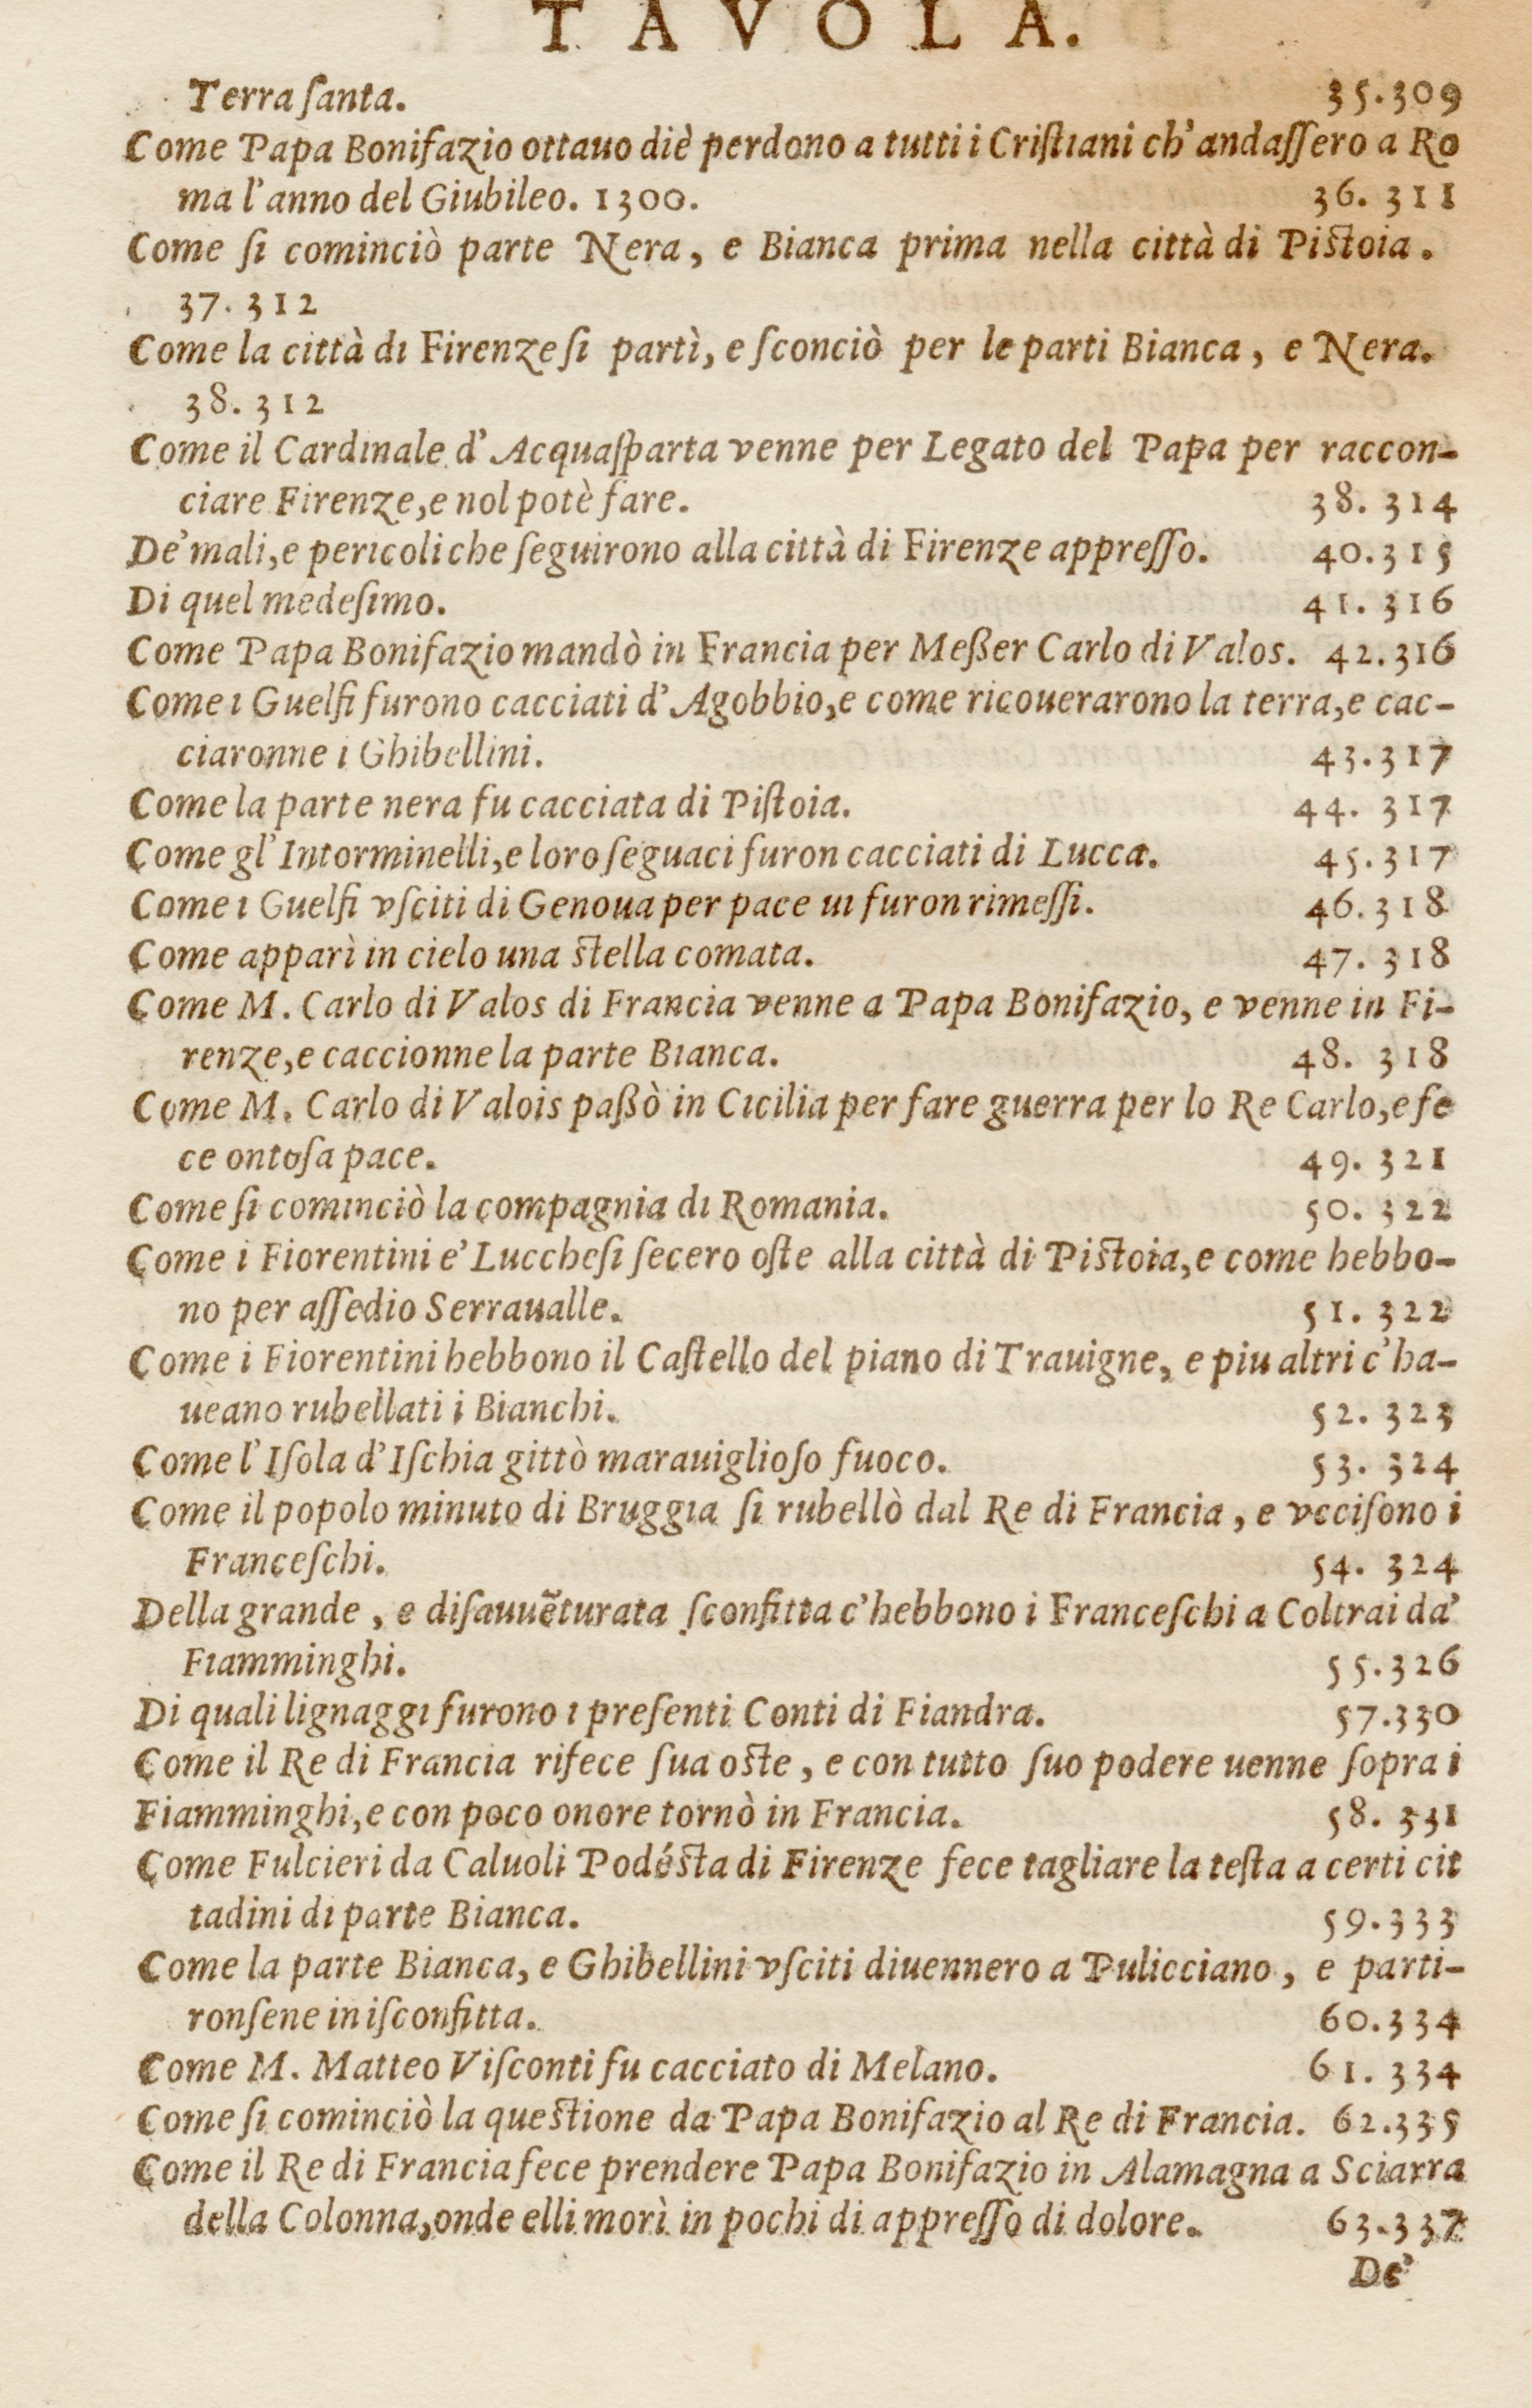 TAVOLA.
Terra ſanta. 35.309
Come Papa Bonifazio ottauo diè perdono a tutti i Criſtiani ch'andaſſero a Ro
ma l'anno del Giubileo. 1300. 36. 311
Come ſi cominciò parte Nera, e Bianca prima nella città di Piſtoia.
37. 312
Come la città di Firenze ſi partì, e ſconciò per le parti Bianca, e Nera.
38. 312
Come il Cardinale d'Acquaſparta venne per Legato del Papa per raccon-
ciare Firenze, e nol potè fare. 38. 314
De' mali, e pericoli che ſeguirono alla città di Firenze appreſſo. 40.315
Di quel medeſimo. 41. 316
Come Papa Bonifazio mandò in Francia per Meßer Carlo di Valos. 42.316
Come i Guelfi furono cacciati d'Agobbio, e come ricouerarono la terra, e cac-
ciaronne i Ghibellini. 43.317
Come la parte nera fu cacciata di Piſtoia. 44. 317
Come gl'Intorminelli, e loro ſeguaci furon cacciati di Lucca. 45.317
Come i Guelfi vſciti di Genoua per pace ui furon rimeſſi. 46.318
Come apparì in cielo una ſtella comata. 47. 318
Come M. Carlo di Valos di Francia venne a Papa Bonifazio, e venne in Fi-
renze, e caccionne la parte Bianca. 48. 318
Come M. Carlo di Valois paßò in Cicilia per fare guerra per lo Re Carlo, e fe
ce ontoſa pace. 49. 321
Come ſi cominciò la compagnia di Romania. 50. 322
Come i Fiorentini e' Luccheſi ſecero oſte alla città di Piſtoia, e come hebbo-
no per aſſedio Serraualle. 51. 322
Come i Fiorentini hebbono il Caſtello del piano di Trauigne, e piu altri c'ha-
ueano rubellati i Bianchi. 52. 323
Come l'Iſola d'Iſchia gittò marauiglioſo fuoco. 53. 324
Come il popolo minuto di Bruggia ſi rubellò dal Re di Francia, e vcciſono i
Franceſchi. 54. 324
Della grande, e diſauuẽturata ſconfitta c'hebbono i Franceſchi a Coltrai da'
Fiamminghi. 55.326
Di quali lignaggi furono i preſenti Conti di Fiandra. 57.330
Come il Re di Francia rifece ſua oſte, e con tutto ſuo podere uenne ſopra i
Fiamminghi, e con poco onore tornò in Francia. 58. 331
Come Fulcieri da Caluoli Podéſta di Firenze fece tagliare la teſta a certi cit
tadini di parte Bianca. 59.333
Come la parte Bianca, e Ghibellini vſciti diuennero a Pulicciano, e parti-
ronſene in iſconfitta. 60.334
Come M. Matteo Viſconti fu cacciato di Melano. 61. 334
Come ſi cominciò la queſtione da Papa Bonifazio al Re di Francia. 62.335
Come il Re di Francia fece prendere Papa Bonifazio in Alamagna a Sciarra
della Colonna, onde elli morì in pochi di appreſſo di dolore. 63.337
De'